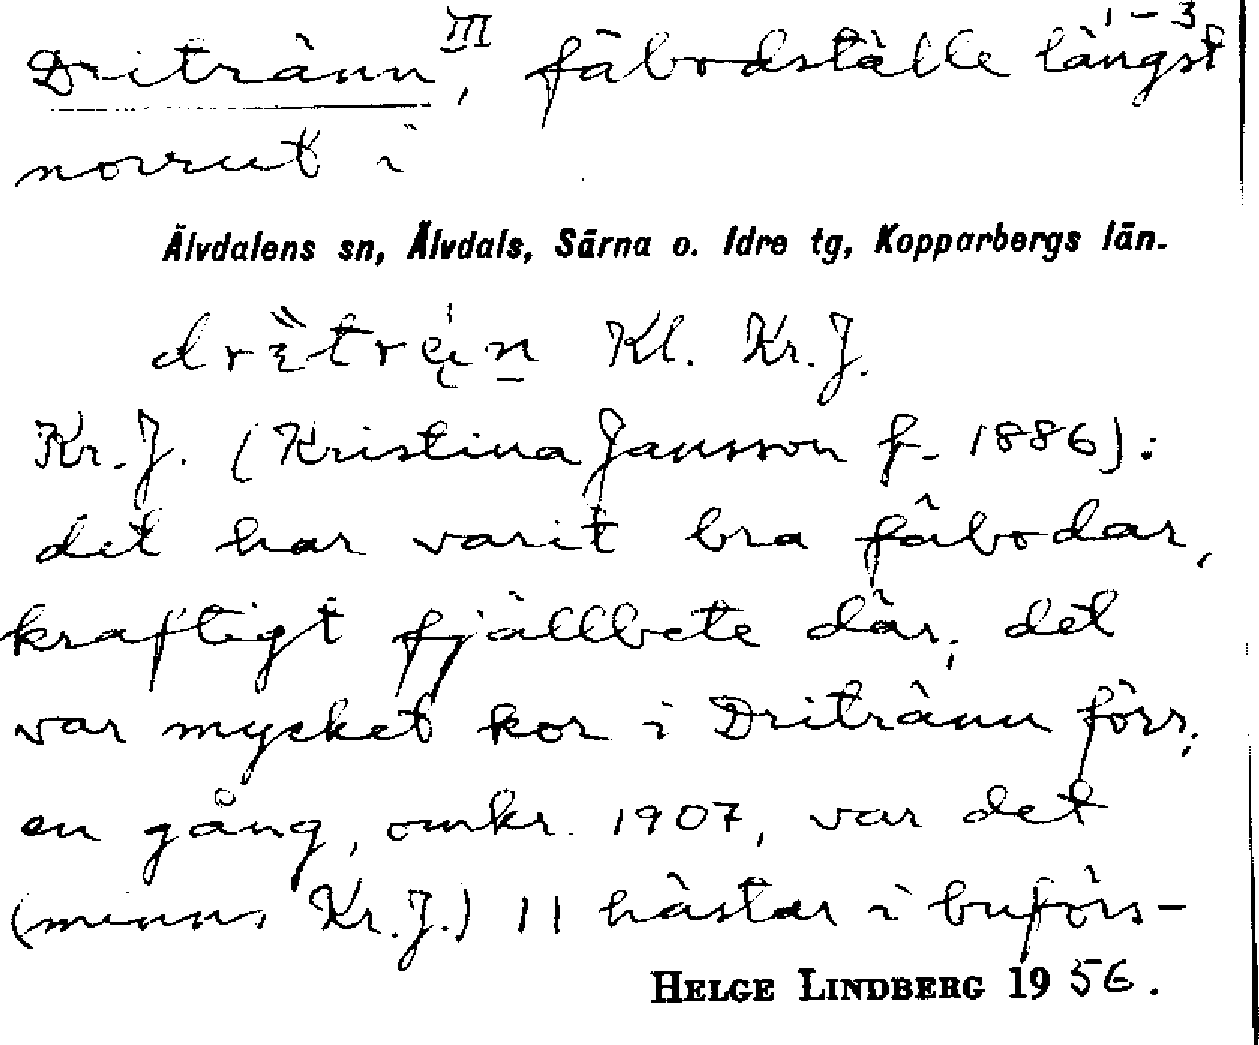 Dritränn III, fäbodställe längst 1-3
norrut i
Älvdalens sn, Älvdals, Särna o. Idre tg, Kopparbergs län.
Kl. Kr. J.
Kr. J. (Kristina Jansson f. 1886):
det har varit bra fäbodar,
kraftigt fjällbete där; det
var mycket kor i Dritränn förr;
en gång, omkr. 1907, var det
(minns Kr. J.) 11 hästar i buförs-
HELGE LINDBERG 1956.